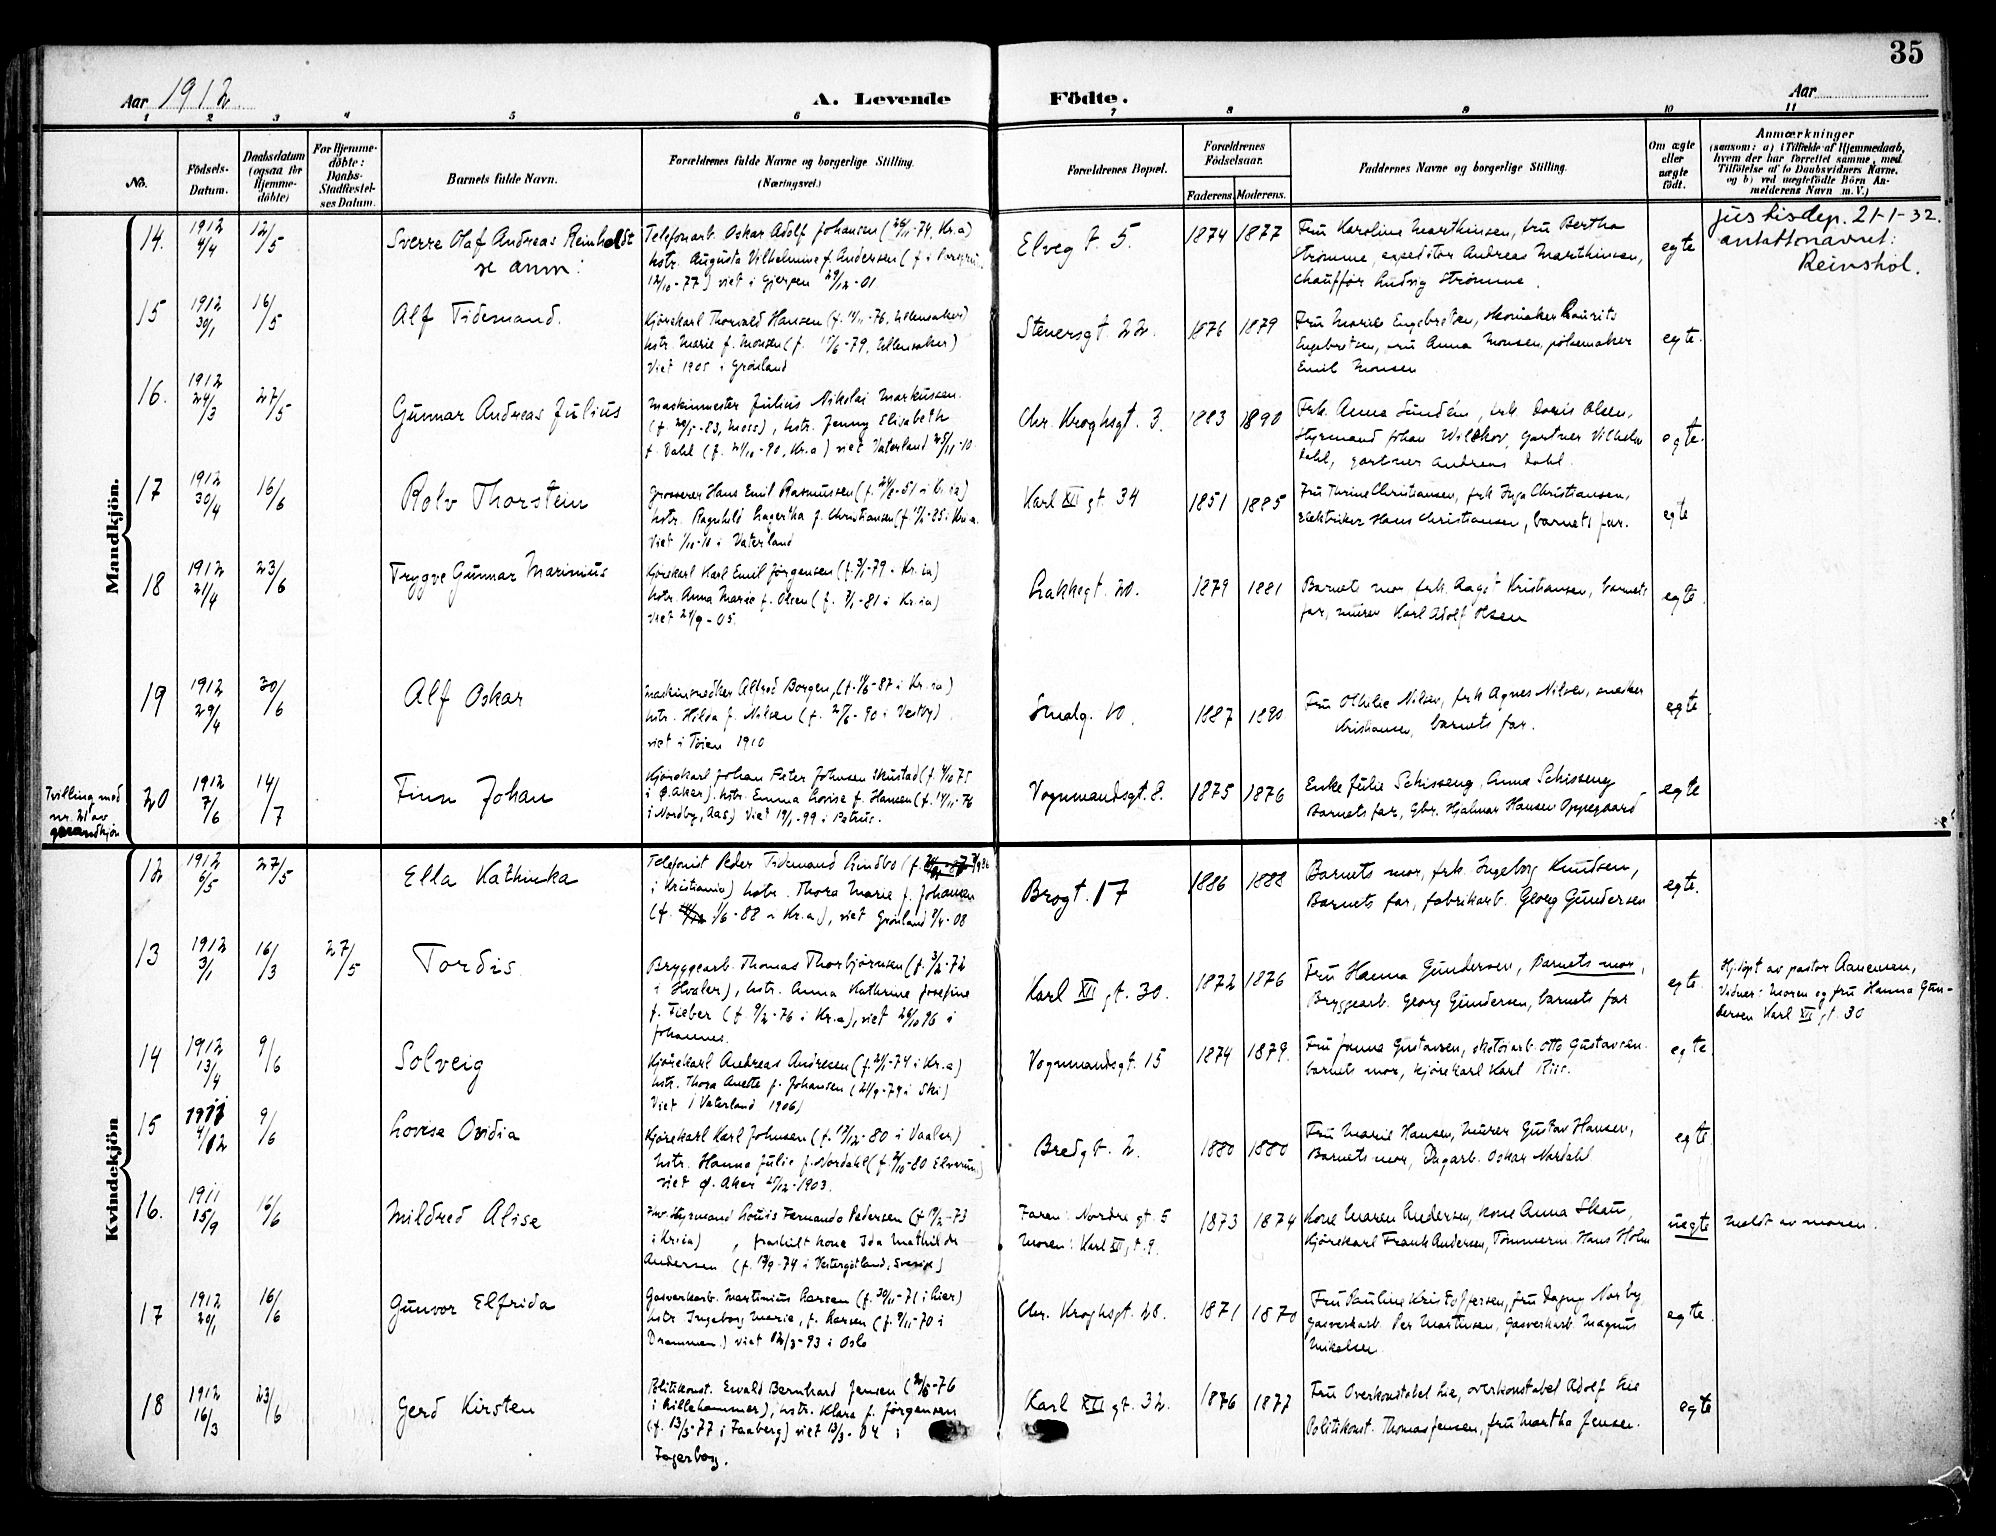 35
Aar 1912
A. Levende Födte.
Aar
1 2 3 4 5 6 7 8 9 10 11
No.
Födsels-
Datum.
Daabsdatum
(ogsaa for
Hjemme-
döbte)
For Hjemme-
döbte:
Daabs-
Stadfæstel-
ses Datum.
Barnets fulde Navn.
Forældrenes fulde Navne og borgerlige Stilling.
(Næringsvei.)
Forældrenes Bopæl.
Forældrenes
Födselsaar.
Faderens. Moderens.
Faddernes Navne og borgerlige Stilling.
Om ægte
eller
uægte
födt.
Anmærkninger
(saasom: a) i Tilfælde af Hjemmedaab,
hvem der har forrettet samme, med
Tilföielse af to Daabsvidners Navne,
og b) ved uægtefödte Börn An-
melderens Navn m. V.)
Mandkjön.
14. 1912 4/4 12/5 Sverre Olaf Andreas Reinholdt
se anm:
Telefonarb. Oskar Adolf Johansen (26/11-74, Kr.a)
hstr. Augusta Vilhelmine f. Andersen (f. i Porsgru.
12/10-77) viet i Gjerpen 29/12-01
Elveg t 5. 1874 1877
Fru Karoline Marthinsen, fru Bertha
Strømme, expeditør Andreas Marthinsen,
chauffør Ludvig Strømme.
egte
Justisdep. 21-1-32.
antattonavnet:
Reinshol.
15 1912 30/1 16/5 Alf Tidemand.
Kjørekarl Thorvald Hansen (f. 11/11-76, Ullensaker)
hstr. Marie f. Monsen (f. 15/6-79, Ullensaker)
Viet 1905 i Grønland
Stenersgt. 22. 1876 1879
Fru Marie Engebretsen, skomaker Laurits
Engebretsen, fru Anna Monsen, pølsemaker
Emil Monsen
egte.
16. 1912 24/3 27/5 Gunnar Andreas Julius
Maskinmester Julius Nikolai Markussen
(f. 20/5-83, Moss), hstr. Jenny Elisabeth
f. Dahl (f. 21/10-90, Kr.a) viet Vaterland 25/11-10
Chr. Kroghsgt. 3. 1883 1890
Frk. Anna Sundén, frk. Doris Olsen,
Styrmand Johan Wilskov, gartner Vilhelm
Dahl, gartner Andreas Dahl.
egte.
17 1912 30/4 16/6 Rolv Thorstein
Grosserer Hans Emil Rasmussen (f. 24/8-51 i Kr.ia)
hstr. Ragnhild Lagertha f. Christiansen (f 11/2-85 i Kr.a.
Viet 1/10-10 i Vaterland
Karl XII gt 34 1851 1885
Fru Thrine Christiansen, frk Inga Christiansen,
elektriker Hans Christiansen, barnets far.
egte
18 1912 21/4 23/6 Trygve Gunnar Marinius
Kjørekarl Karl Emil Jørgensen (f. 3/1-79 - Kr.ia)
hstr. Anna Marie f. Olsen (f. 7/1-81 i Kr.ia)
Viet 24/9-05.
Lakkegt. 20. 1879 1881
Barnets mor frk. Aagå Kristiansen, barnets
far, murer Karl Adolf Olsen
egte.
19 1912 29/4 30/6 Alf Oskar
Maskinsnedker Alfred Borgen, (f. 1/6-87 i Kr.ia)
hstr. Hilda f. Nilsen (f. 27/6-90 i Vestby)
viet i Tøien 1910
Smalg. 10. 1887 1890
Fru Othilie Nilsen, frk Agnes Nilsen, snekker
Kristiansen, barnets far.
egte
Tvilling med
nr. 21 av
20 1912 7/6 14/7 Finn Johan
Kjørekarl Johan Peter Johnsen Skustad (f. 4/10 75
i Ø. Aker) hstr. Emma Lovise f. Hansen (f. 14/11-76
i Nordby, Aas) Viet 19/1-99 i Petrus.
Vognmandsgt. 8. 1875 1876
Enke Julie Schisseng, Anna Schisseng
Barnets far, Gbr. Hjalmar Hansen Oppegaard
egte
Kvindekjön
12 1912 6/5 27/5 Ella Kathinka
Telefonist Peder Tidemand Lindbo (f.
i Kristiania) hstr. Thora Marie f. Johansen
(f. 1/6-88 i Kr.a), viet Grønland 8/4-08
Brogt. 17 1886 1888
Barnets mor, frk. Ingeborg Knudsen,
Barnets far, fabrikarb. Georg Gundersen
egte.
13 1912 3/1 16/3 27/5 Tordis
Bryggearb. Thomas Thorbjørnsen (f. 3/2-72
i Hvaler), hstr. Anna Kathrine Josefine
f. Fieber (f 9/2-76 i Kr.a), viet 26/10 96 i
Johannes.
Karl XII gt. 30. 1872 1876
Fru Hanna Gundersen, Barnets mor,
Bryggearb. Georg Gundersen, barnets far
egte.
Hj.døpt av pastor Aanensen,
Vidner: Moren og fru Hanna Gun-
dersen Karl XII gt. 30
14 1912 13/4 9/6 Solveig
Kjørekarl Andreas Andresen (f. 21/1-74 i Kr.a)
hstr. Thora Anette f. Johansen (21/9-79 i Ski)
Viet i Vaterland 1906)
Vognmandsgt. 15 1874 1879.
Fru Janna Gustavsen, skotøiarb. Otto Gustavsen
barnets mor, kjørekarl Karl Riis.
egte.
15 1911 4/12 9/6 Lovise Ovidia
Kjørekarl Karl Johnsen (f. 17/12-80 i Vaaler)
hstr. Hanna Julie f. Nordahl (f 8/10-80 Elverum)
viet Ø. Aker 25/12-1903.
Bredgt. 2. 1880 1880
Fru Marie Hansen, Murer Gustav Hansen,
Barnets mor, Dagarb. Oskar Nordahl
egte
16. 1911 15/9 16/6 Mildred Alise
Fhv. Styrmand Louis Fernando Pedersen (f 19/2-73
i Kr.ia), fraskilt kone Ida Mathilde
Andersen (f. 13/9-74 i Vestergötland, Sverige)
Faren: Nordre gt. 5
Moren: Karl XII gt. 9. 1873 1874
Kone Maren Andersen, kone Anna Skau,
Kjørekarl Frank Andersen, Tømmerm. Hans Holm
uegte
Meldt av moren.
17 1912 20/1 16/6 Gunvor Elfrida
Gasverkarb. Martinius Larsen (f. 30/11-71 i Lier)
hstr Ingeborg Marie, f. Larsen (f. 9/11-70 i
Drammen.) viet 12/3-93 i Oslo
Chr. Kroghsgt. 28. 1871 1870
Fru Pauline Kristoffersen, fru Dagny Norby,
Gasverkarb. Per Martinsen, Gasverkarb. Magnus
Mikalsen.
egte.
18 1912 16/3 23/6 Gerd Kirsten
Politikonst. Ewald Bernhard Jensen (21/6-76
i Lillehammer), hstr. Klara f. Jørgensen
(f. 13/5-77 i Faaberg) viet 13/3-04 i
Fagerborg.
Karl XII gt. 32. 1876 1877
Fru Overkonstabel Lie, overkonstabel Adolf Lie
Politikonst. Thomas Jensen, fru Martha Jensen.
egte